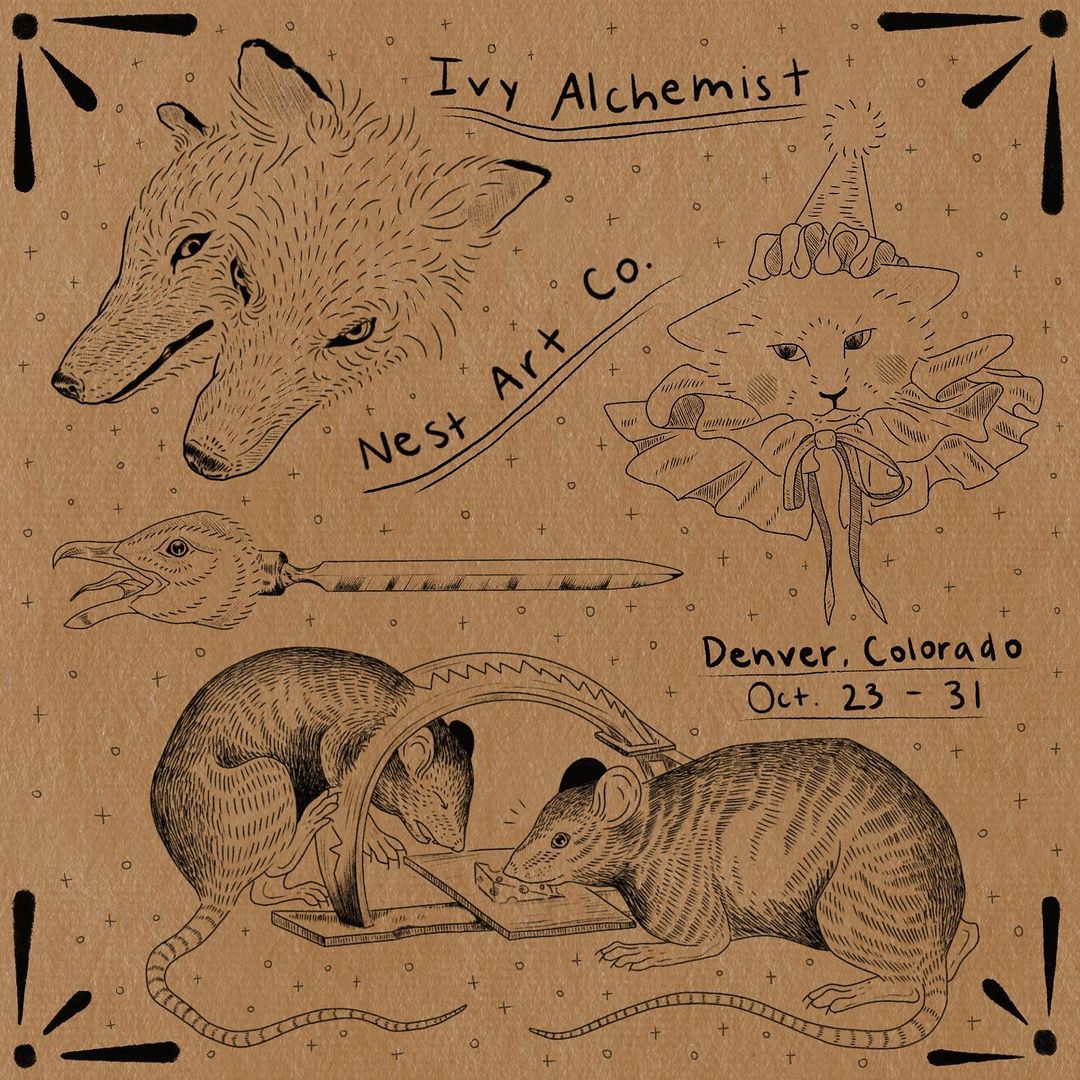 Ivy Alchemist
Nest Art Co.
Denver, Colorado
Oct. 23 - 31